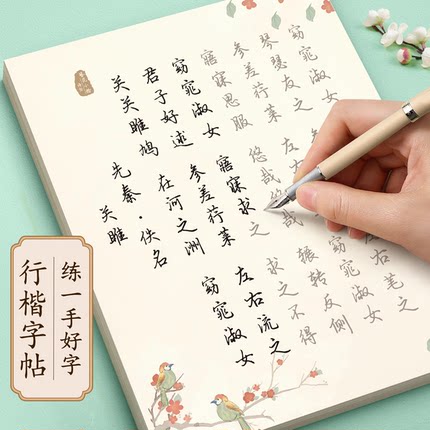 关雎
先秦·佚名
关关雎鸠
在河之洲
君子好逑
参差荇菜
窈窕淑女
窈窕淑女
寤寐求之
左右流之
寤寐思服
悠哉悠哉
求之不得
参差荇菜
左右
辗转反侧
琴瑟友之
参
窈窕淑女
窈窕淑女
左右芼之
练一手好字
行楷字帖